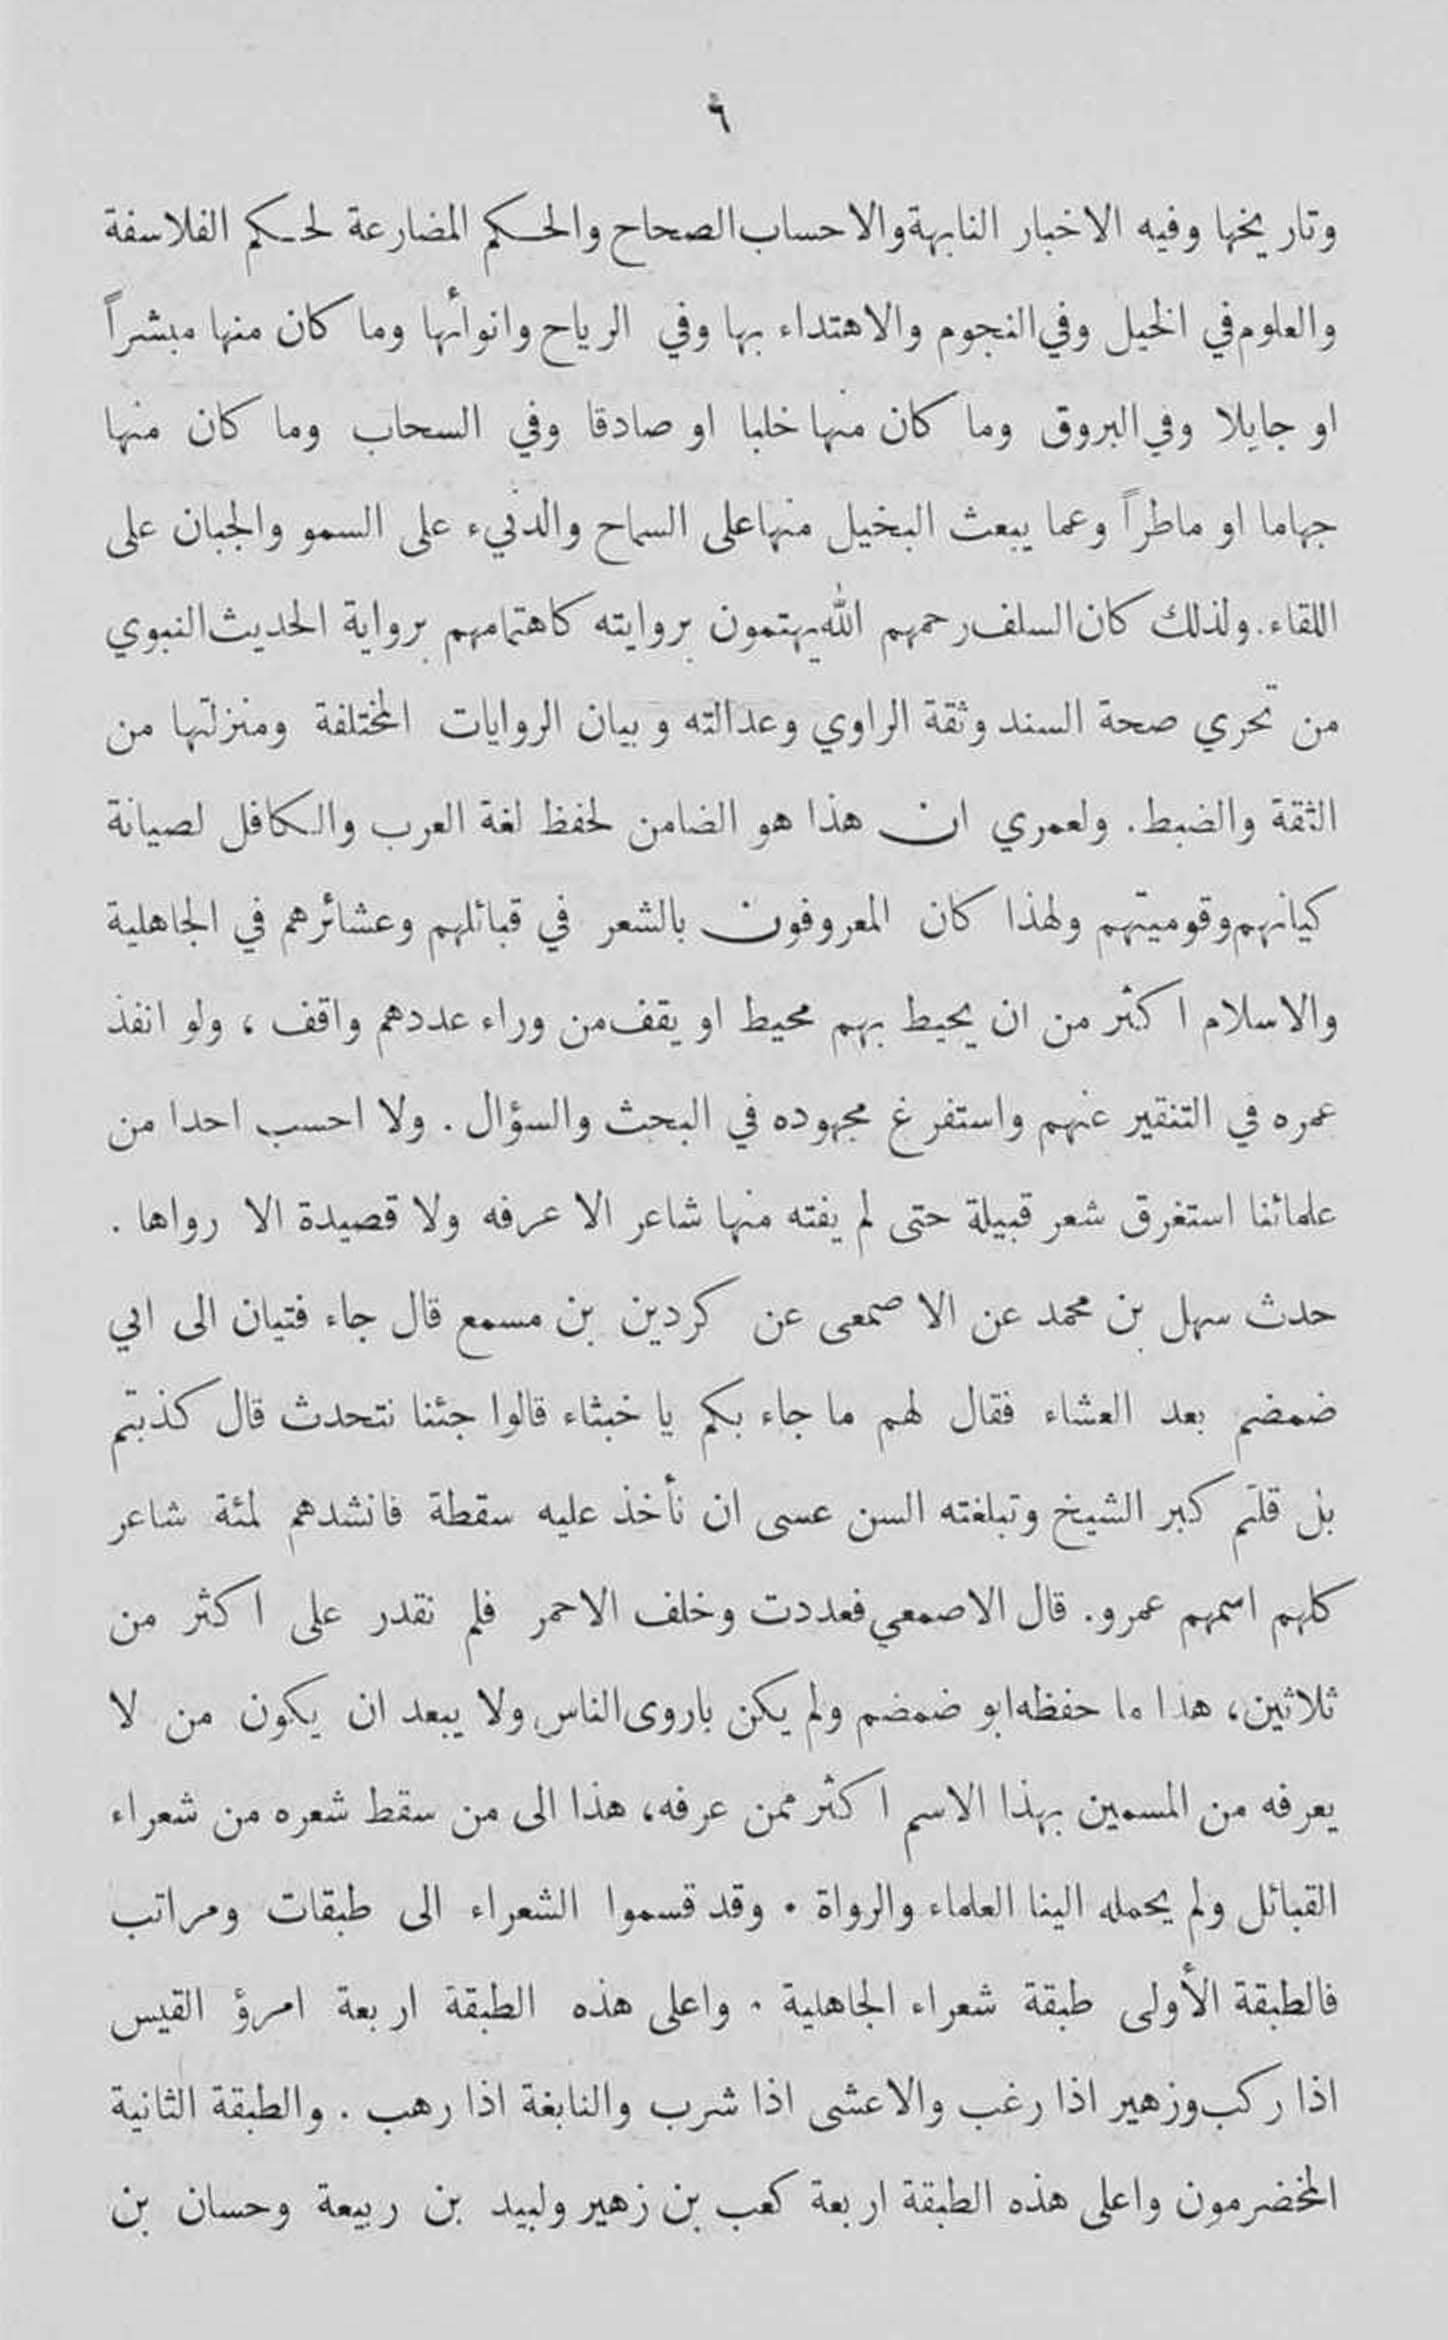 ٦
وتاريخها وفيه الاخبار النابهة والاحساب الصحاح والحكم المضارعة لحكم الفلاسفة
والعلوم في الخيل وفي النجوم والاهتداء بها وفي الرياح وانوائها وما كان منها مبشراً
او جايلا وفي البروق وما كان منها خلبا او صادقا وفي السحاب وما كان منها
جهاما او ماطراً وعما يبعث البخيل منها على السماح والدنيء على السمو والجبان على
اللقاء. ولذلك كان السلف رحمهم الله يهتمون بروايته كاهتمامهم برواية الحديث النبوي
من تحري صحة السند وثقة الراوي وعدالته وبيان الروايات المختلفة ومنزلتها من
الثقة والضبط. ولعمري ان هذا هو الضامن لحفظ لغة العرب والكافل لصيانة
كيانهم وقوميتهم ولهذا كان المعروفون بالشعر في قبائلهم وعشائرهم في الجاهلية
والاسلام اكثر من ان يحيط بهم محيط او يقف من وراء عددهم واقف ، ولو انفذ
عمره في التنقير عنهم واستفرغ مجهوده في البحث والسؤال . ولا احسب احدا من
علمائنا استغرق شعر قبيلة حتى لم يفته منها شاعر الا عرفه ولا قصيدة الا رواها .
حدث سهل بن محمد عن الاصمعى عن كردين بن مسمع قال جاء فتيان الى ابي
ضمضم بعد العشاء فقال لهم ما جاء بكم يا خبثاء قالوا جئنا نتحدث قال كذبتم
بل قلتم كبر الشيخ وتبلغته السن عسى ان نأخذ عليه سقطة فانشدهم لمئة شاعر
كلهم اسمهم عمرو. قال الاصمعي فعددت وخلف الاحمر فلم نقدر على اكثر من
ثلاثين، هذا ما حفظه ابو ضمضم ولم يكن باروى الناس ولا يبعد ان يكون من لا
يعرفه من المسمين بهذا الاسم اكثر ممن عرفه، هذا الى من سقط شعره من شعراء
القبائل ولم يحمله الينا العلماء والرواة . وقد قسموا الشعراء الى طبقات ومراتب
فالطبقة الأولى طبقة شعراء الجاهلية . واعلى هذه الطبقة اربعة امرؤ القيس
اذا ركب وزهير اذا رغب والاعشى اذا شرب والنابغة اذا رهب . والطبقة الثانية
المخضرمون واعلى هذه الطبقة اربعة كعب بن زهير ولبيد بن ربيعة وحسان بن